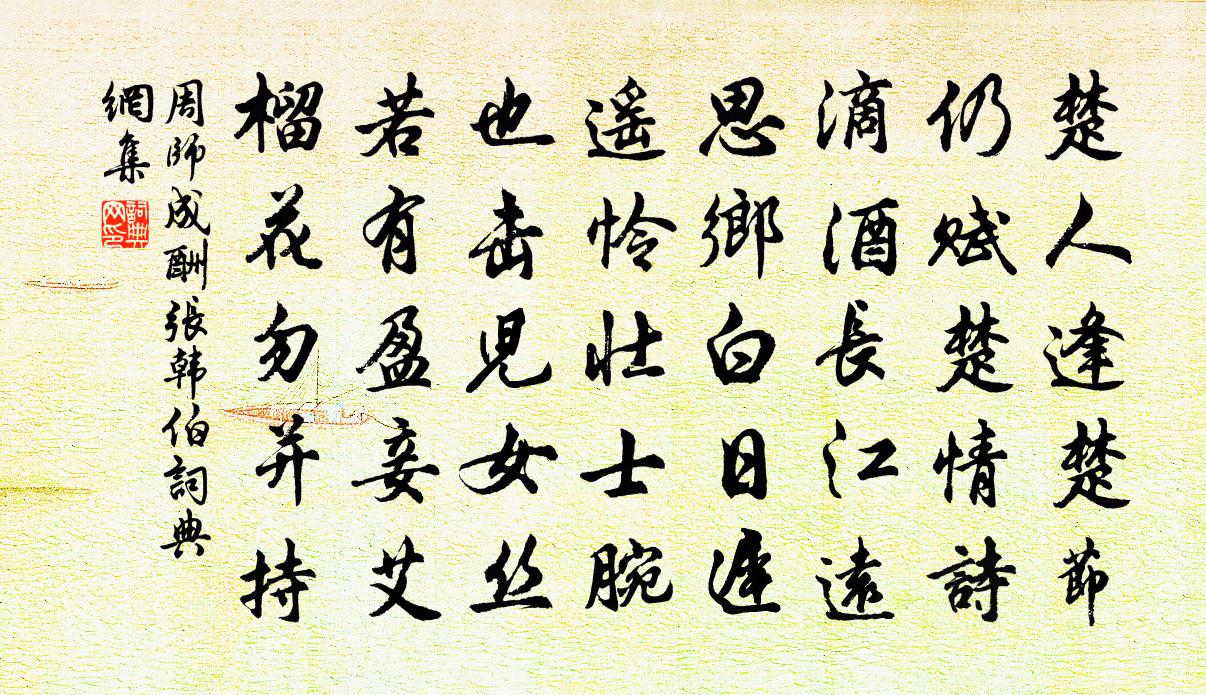 楚人逢楚節
仍賦楚情詩
滴酒長江遠
思鄉白日遲
遥怜壮士腕
也击兒女丝
若有盈妾艾
榴花勿并持
周師成酬張韩伯詞典
網集
詞典
网印